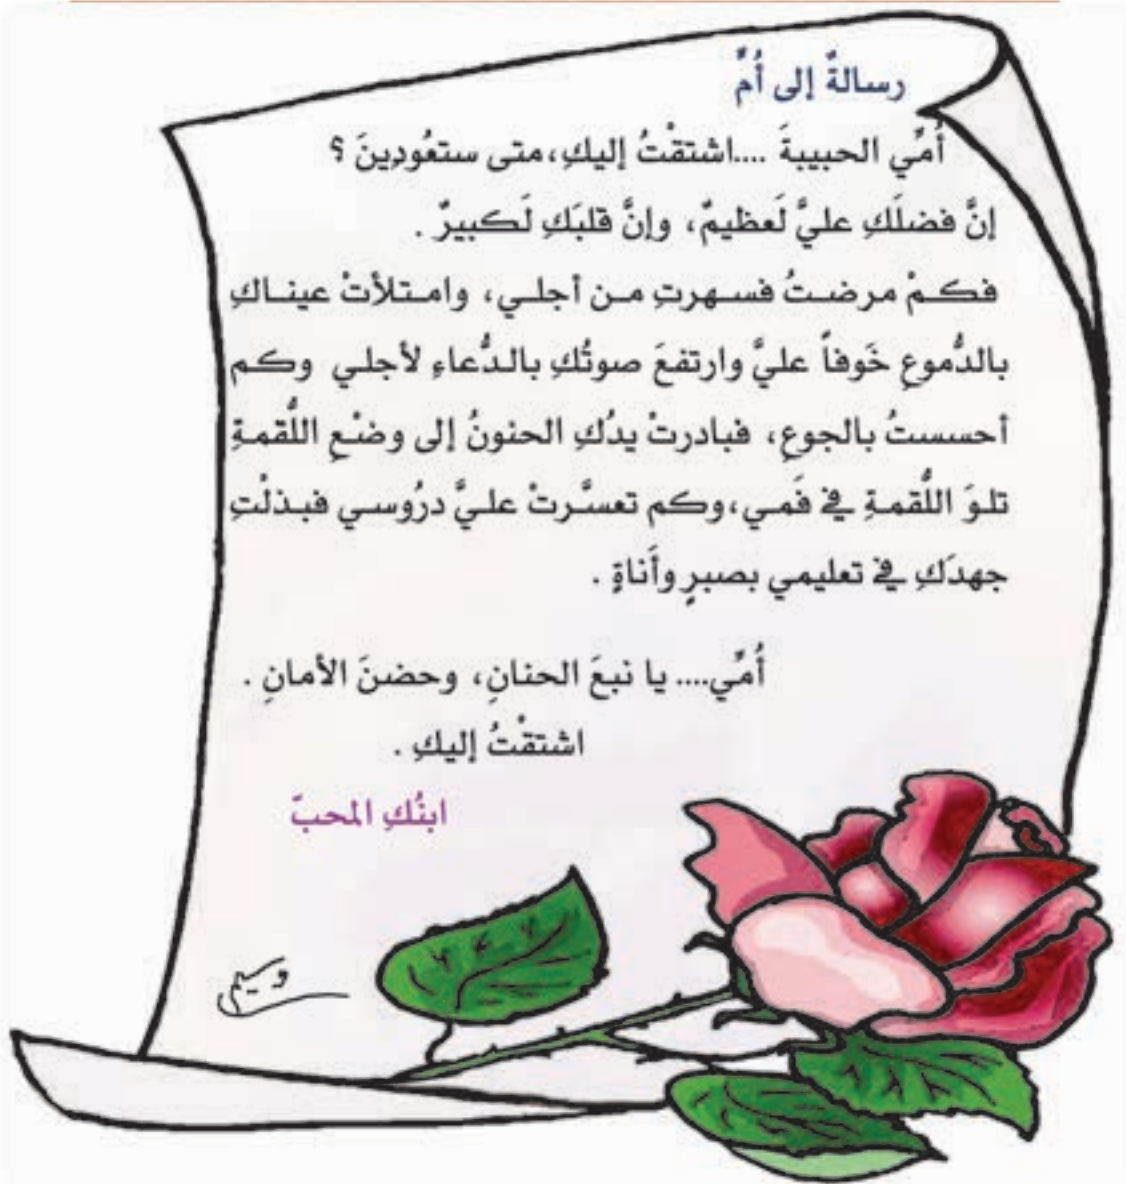 رسالةٌ إلى أُمٍّ
أُمِّي الحبيبةَ ....اشتقْتُ إليكِ،متى ستعُودِينَ ؟
إنَّ فضلَكِ عليَّ لَعظيمٌ، وإنَّ قلبَكِ لَكبيرٌ .
فكمْ مرضتُ فسهرتِ من أجلي، وامتلأتْ عيناكِ
بالدُّموعِ خَوفاً عليَّ وارتفعَ صوتُكِ بالدُّعاءِ لأجلي وكم
أحسستُ بالجوعِ، فبادرتْ يدُكِ الحنونُ إلى وضْعِ اللُّقمةِ
تلوَ اللُّقمةِ في فَمي،وكم تعسَّرتْ عليَّ درُوسي فبذلْتِ
جهدَكِ في تعليمي بصبرٍ وأَناةٍ .
أُمِّي.... يا نبعَ الحنانِ، وحضنَ الأمانِ .
اشتقْتُ إليكِ .
ابنُكِ المحبّ
وسيم